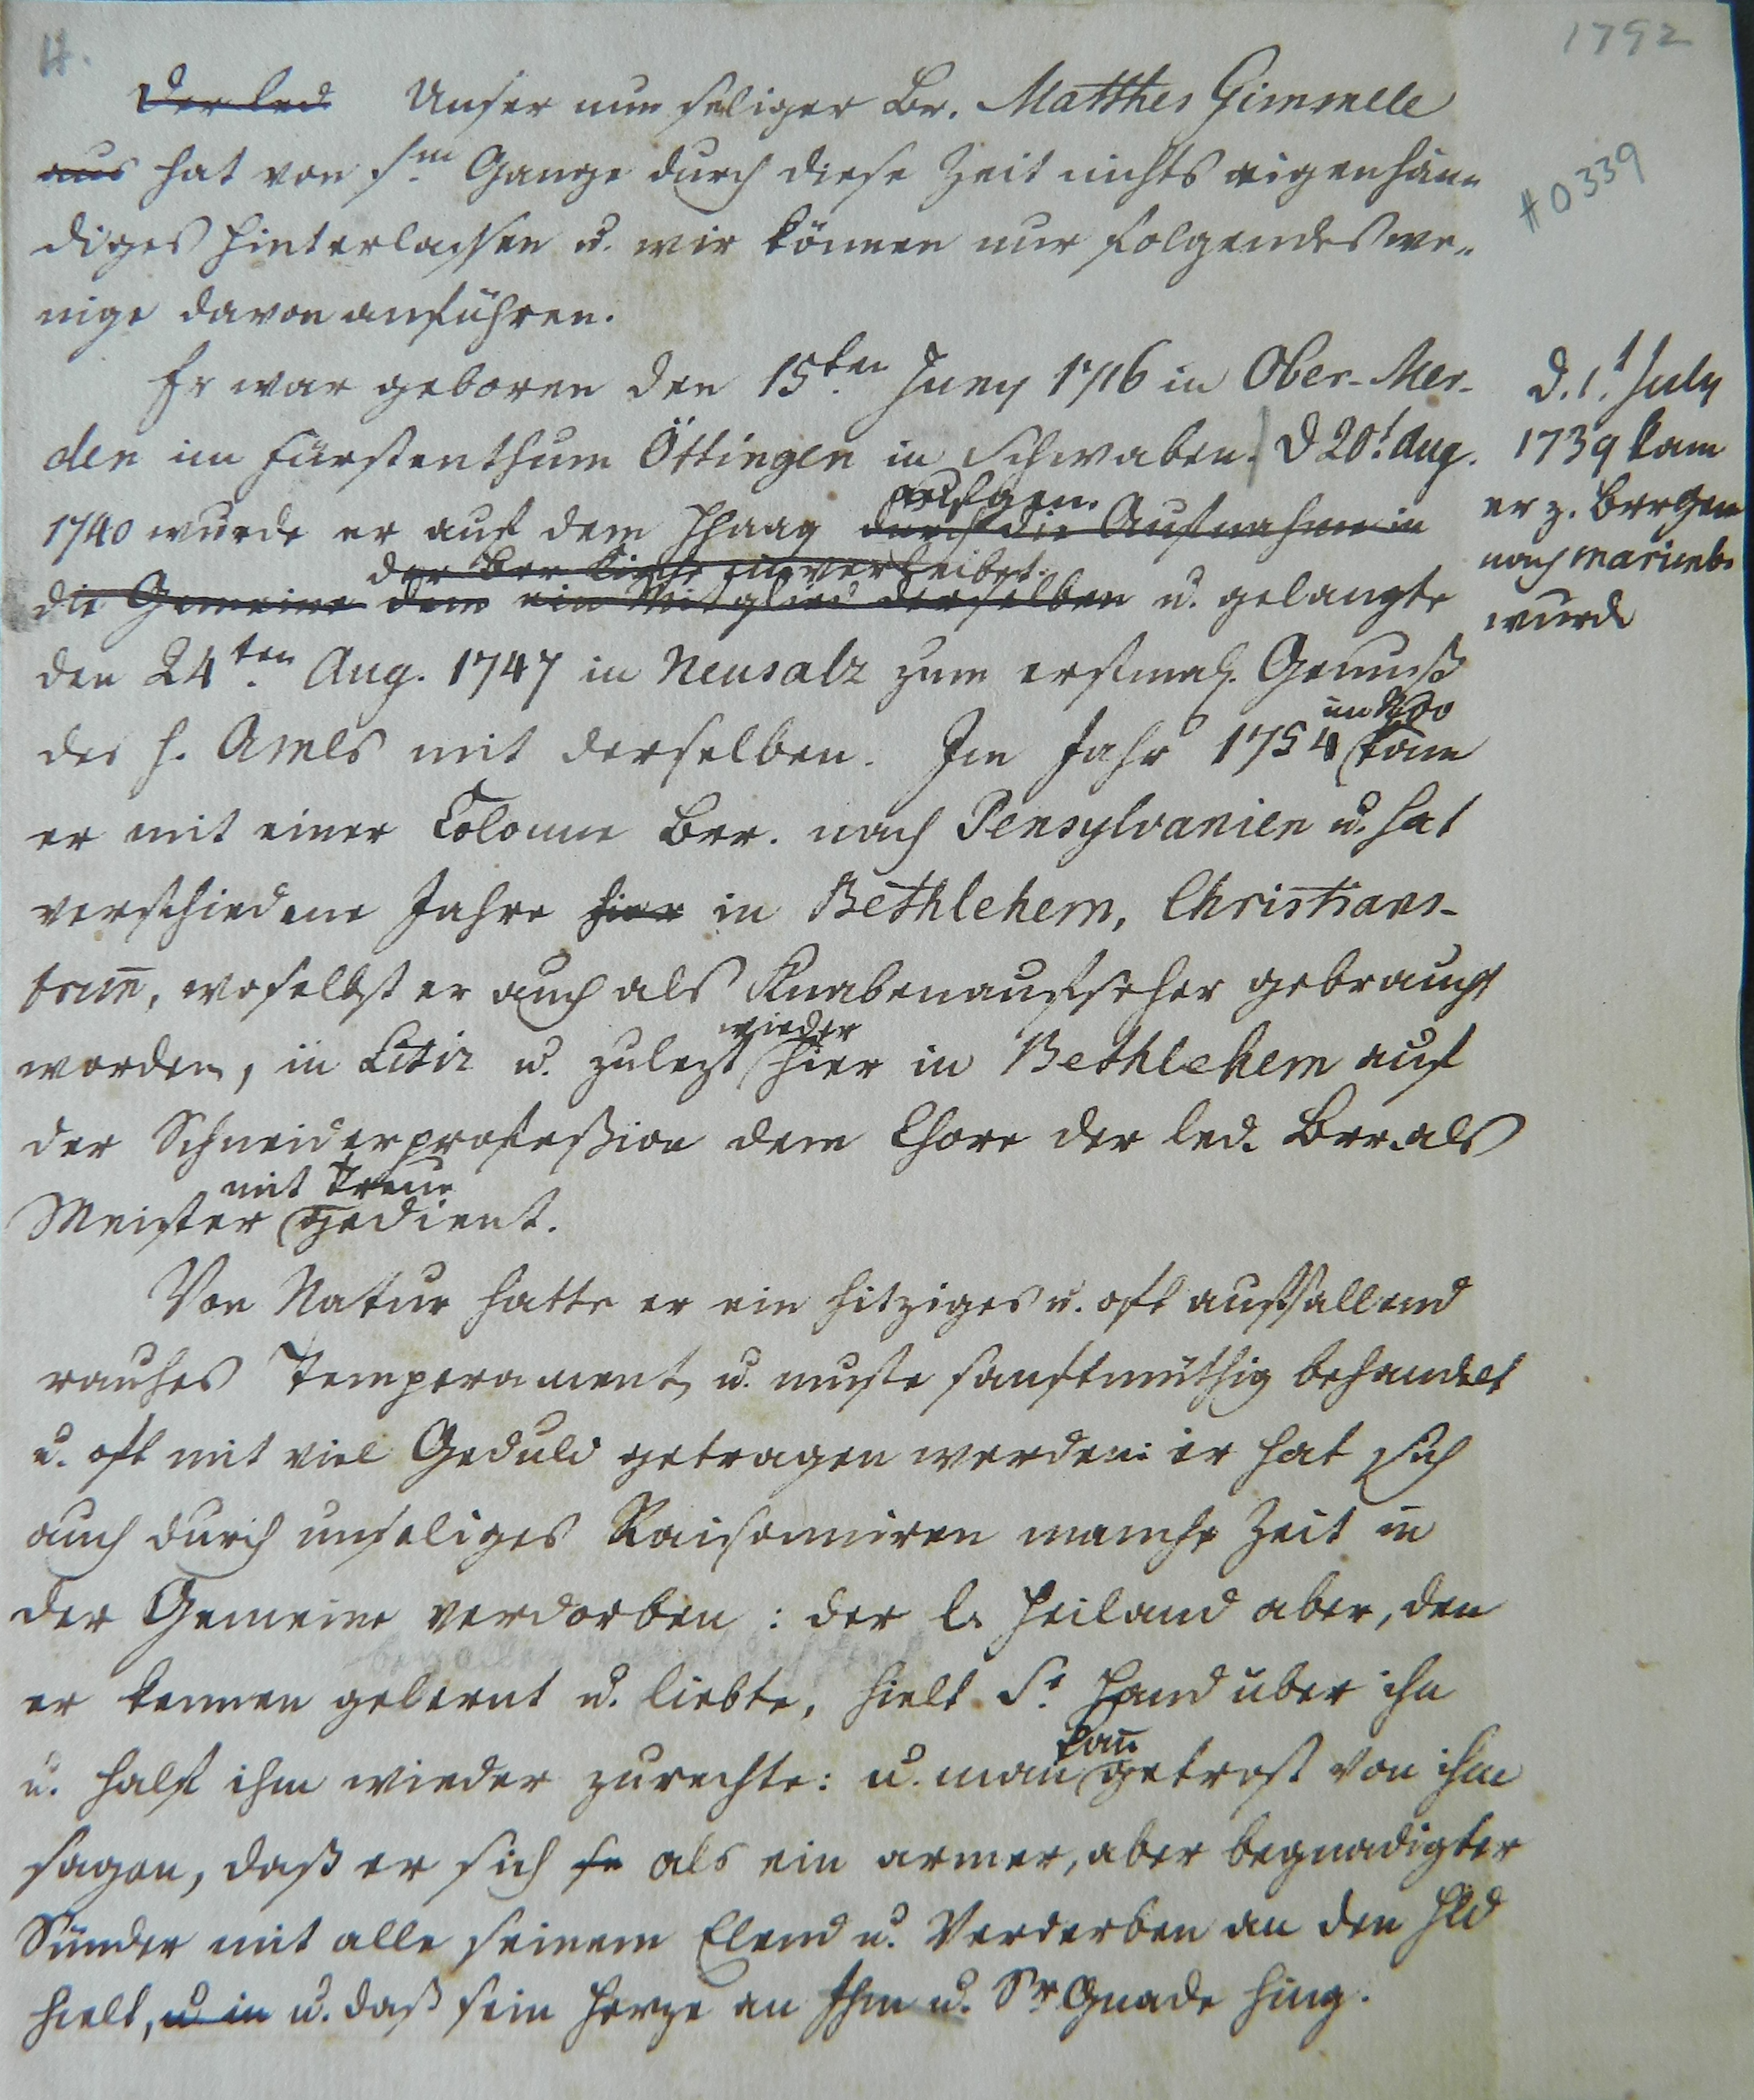 4.
1792
#0339
Der led Unser nun seliger Br. Matthes Gimmele
aus hat von sm. Gange durch diese Zeit nichts eigenhän-
diges hinterlassen u. wir können nur folgendes we-
nige davon anführen.
Er war geboren den 15ten Juny 1716 in Ober-Mer-
den im Fürstenthum Öttingen in Schwaben. D 20t. Aug.
d. 1t. July
1739 kam
er z. Brrgem
nach Marienb.
wurde
aufgen.
1740 wurde er auf dem Hhaag durch die Aufnahme in
der Brr Kirche einverleibet.
die Gemeine dem ein Mitglied derselben u. gelangte
den 24ten Aug. 1747 in Neusalz zum erstmal. Genuß
des h. Amls mit derselben. Im Jahr 1754
im Nov
kam
er mit einer Colonne Brr. nach Pensylvanien u. hat
verschiedene Jahre hier in Bethlehem, Christians-
brun̄, woselbst er auch als Knabenaufseher gebraucht
wieder
worden, in Litiz u. zulezt hier in Bethlehem auf
der Schneiderprofeßion dem Chore der led. Brr. als
mit Treue
Meister gedient.
Von Natur hatte er ein hitziges u. oft auffallend
rauhes Temperament, u. mußte sanftmüthig behandelt
u. oft mit viel Geduld getragen werden: er hat sich
auch durch unseliges Raisonniren manche Zeit in
der Gemeine verdorben: der l. Heiland aber, den
er kennen gelernt u. liebte, hielt Se. Hand über ihn
kan̄
u. half ihm wieder zurechte: u. man getrost von ihm
sagen, daß er sich se als ein armer, aber begnadigter
Sünder mit alle seinem Elend u. Verderben an den Hld
hielt, u. in u. daß sein Herze an Ihm u. Sr Gnade hing.